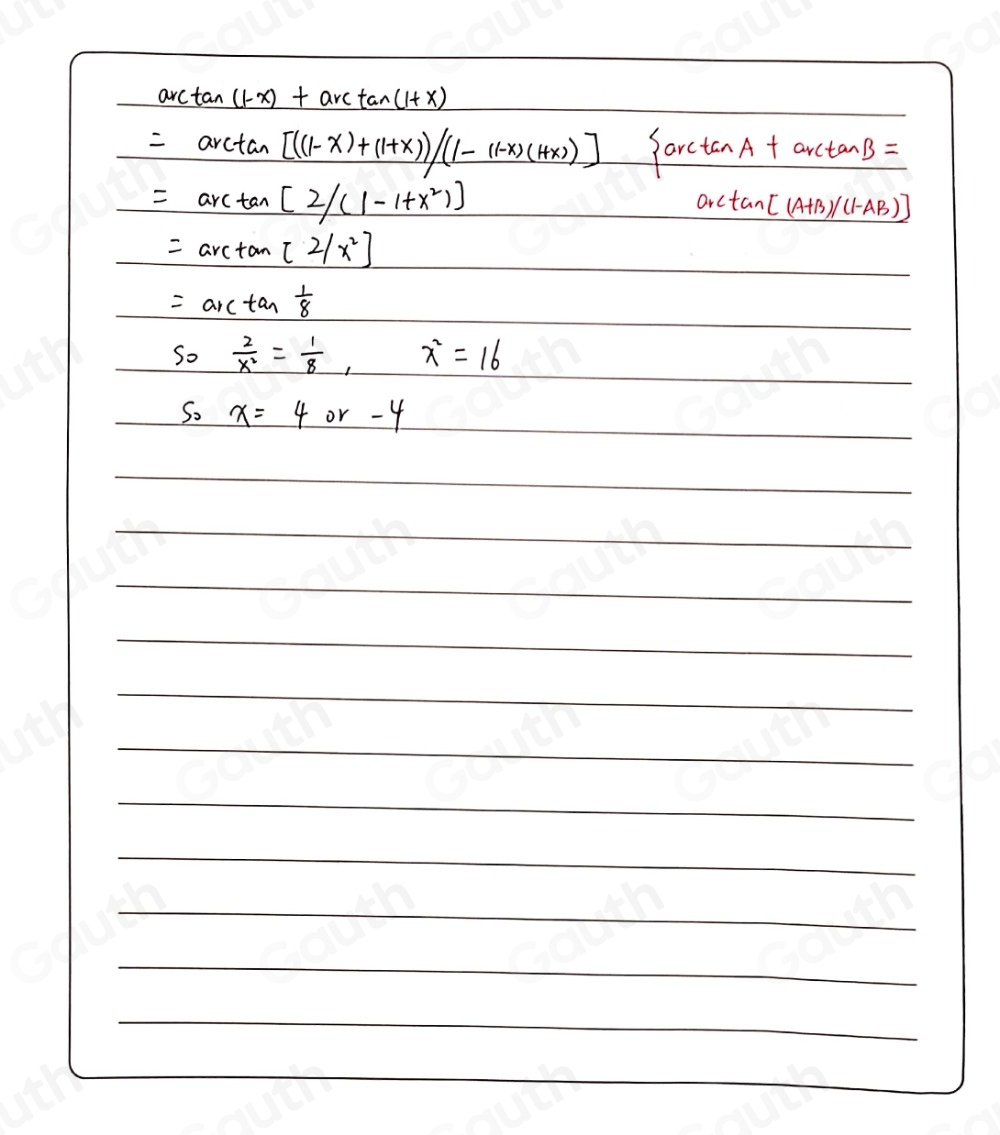 arctan (1-x) + arctan(1+x)
= arctan [((1-x)+(1+x))/(1-(1-x)(1+x))] {arctan A + arctan B =
= arctan [2/(1-1+x²)] arctan[(A+B)/(1-AB)]
= arctan [2/x²]
= arctan 1/8
So 2/x² = 1/8, x² = 16
So x = 4 or -4